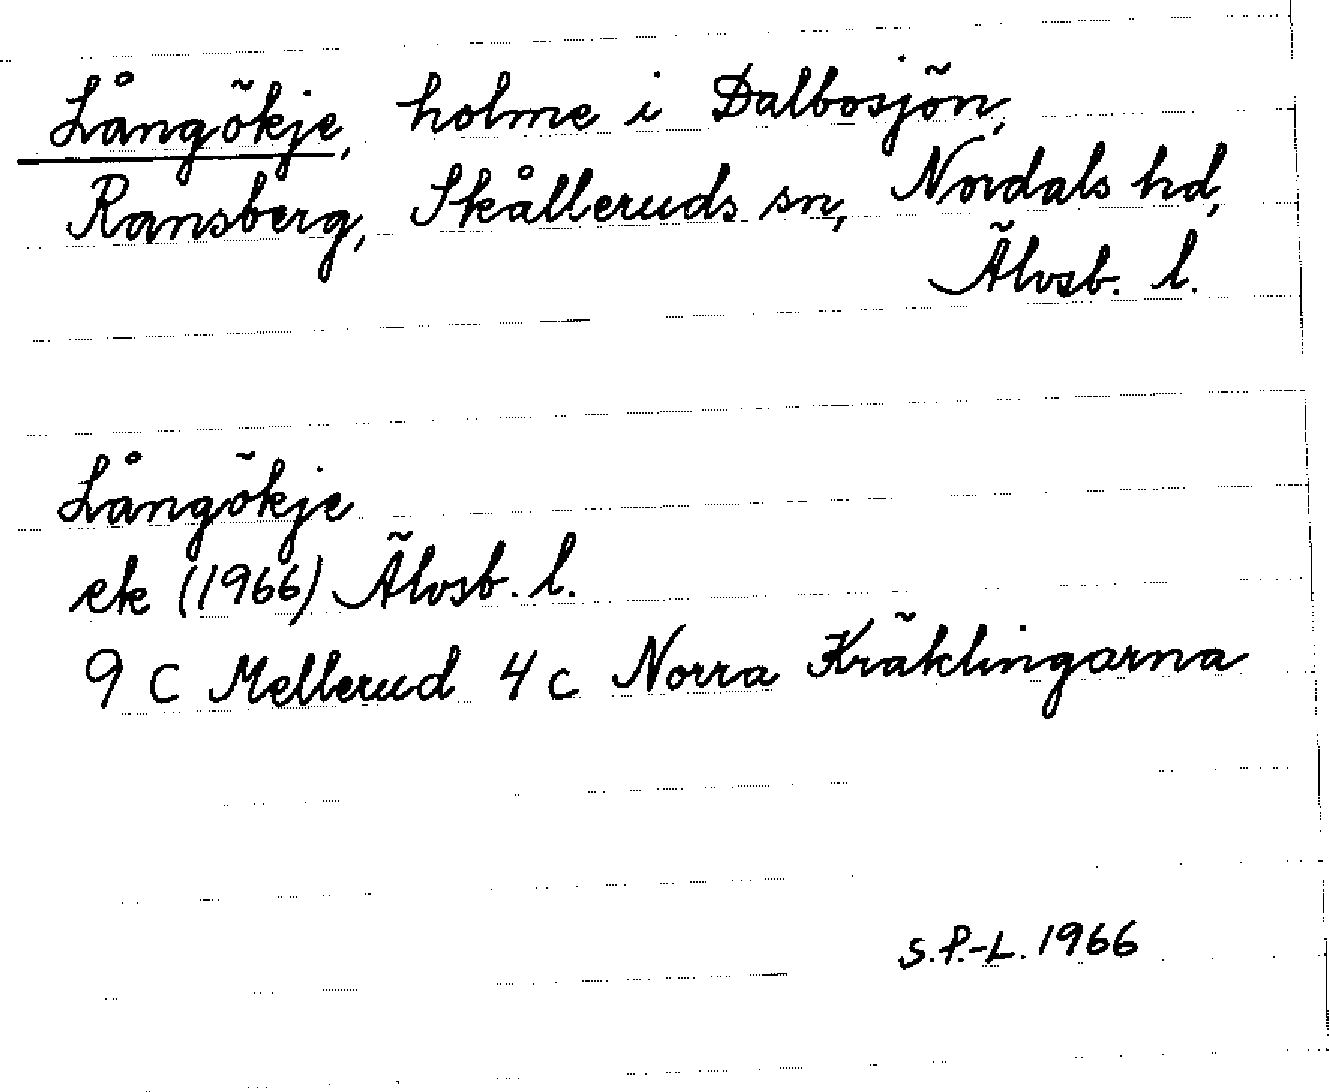 Långökje, holme i Dalbosjön,
Ransberg, Skålleruds sn, Nordals hd,
Älvsb. l.
Långökje
ek (1966) Älvsb. l.
9 C Mellerud 4 c Norra Kräklingarna
S.P.-L. 1966